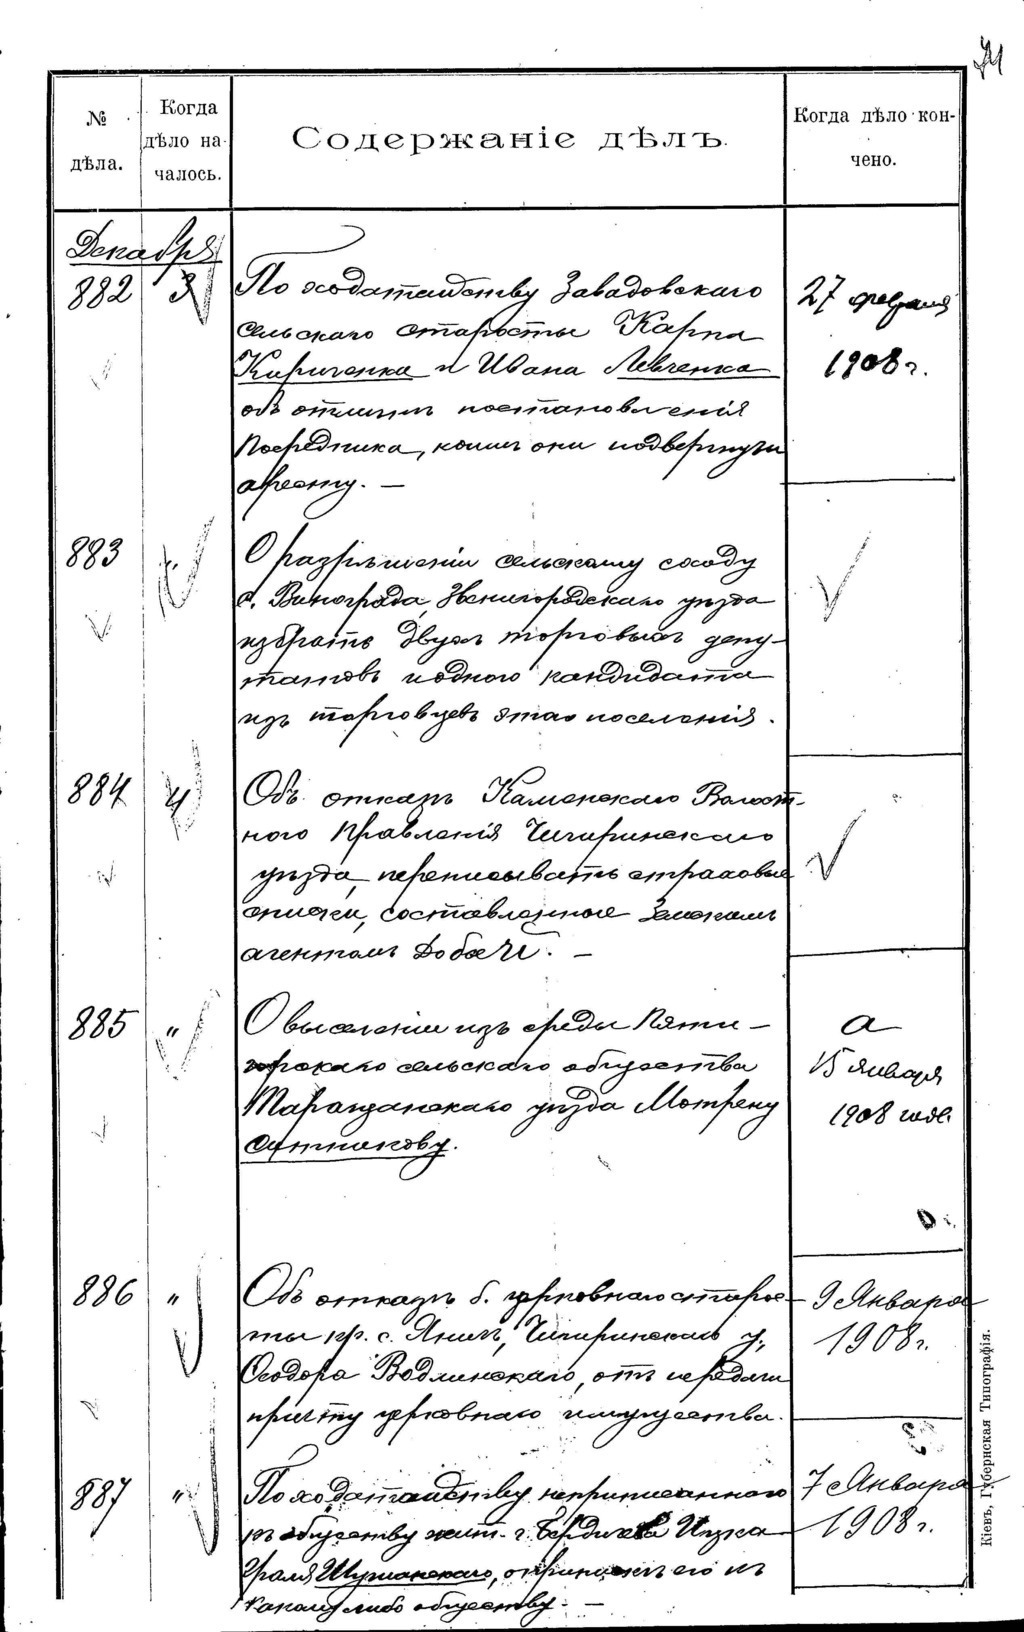 71
№ дѣла.
Когда дѣло началось.
Содержаніе дѣлъ.
Когда дѣло кончено.
Декабря
882
3
По ходатайству Завадовскаго
сельскаго старосты Карпа
Кириченка и Ивана Левченка
объ отмѣнѣ постановленія
Посредника, коимъ они подвергнуты
аресту. —
27 февраля
1908 г.
883
"
О разрѣшеніи сельскому сходу
с. Винограда, Звенигородскаго уѣзда
избрать двухъ торговыхъ депу-
татовъ и одного кандидата
изъ торговцевъ этого поселенія.
884
4
Объ отказѣ Каменскаго Волост-
ного Правленія Чигиринскаго
уѣзда, переписывать страховые
списки, составленные Земскимъ
агентомъ
885
"
О выселеніи изъ среды Пяти-
горскаго сельскаго общества
Таращанскаго уѣзда Мотрену
а
15 января
1908 года.
886
"
Объ отказѣ б. церковнаго старос-
ты пр. с. Яничъ, Чигиринскаго у.,
Ѳеодора Водлинскаго, отъ передачи
причту церковнаго имущества.
9 Января
1908 г.
887
"
По ходатайству неприписаннаго
къ обществу жит. г. Бердичева Ицка
Сруля Шуманскаго, о припискѣ его къ
какому либо обществу. —
7 Января
1908 г.
Кіевъ, Губернская Типографія.